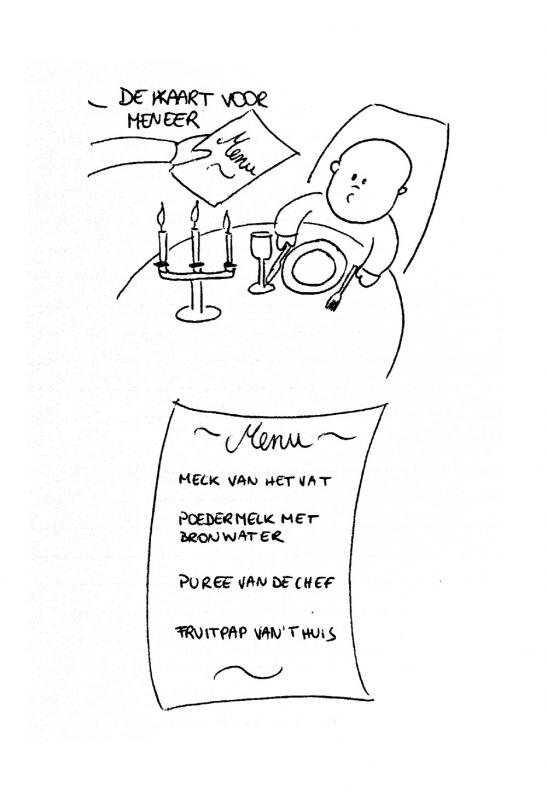 DE KAART VOOR
MENEER
Menu
~ Menu ~
MELK VAN HET VAT
POEDERMELK MET
BRONWATER
PUREE VAN DE CHEF
FRUITPAP VAN'T HUIS